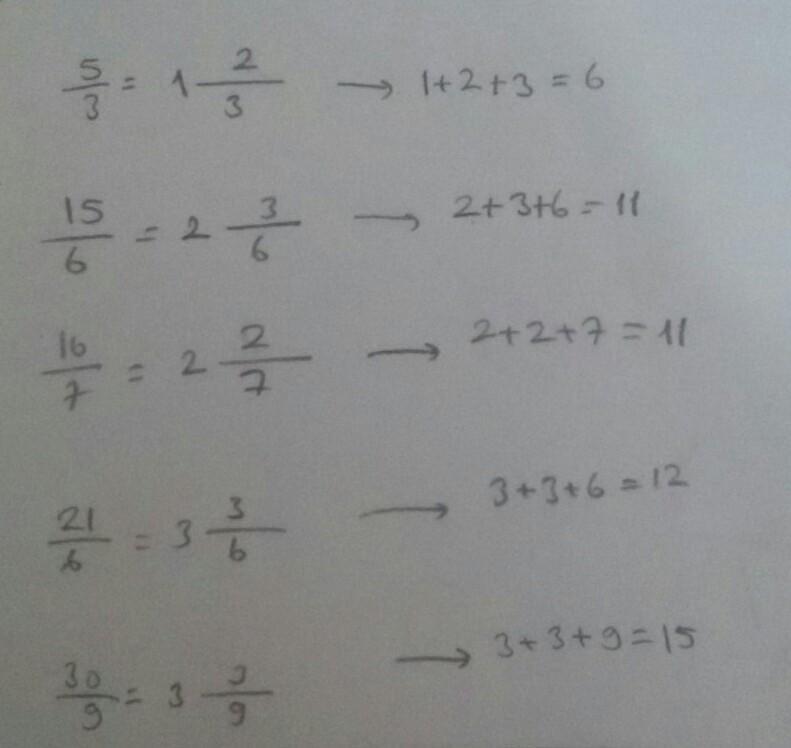 5/3 = 1 2/3 → 1+2+3 = 6
15/6 = 2 3/6 → 2+3+6 = 11
16/7 = 2 2/7 → 2+2+7 = 11
21/6 = 3 3/6 → 3+3+6 = 12
30/9 = 3 3/9 → 3+3+9 = 15